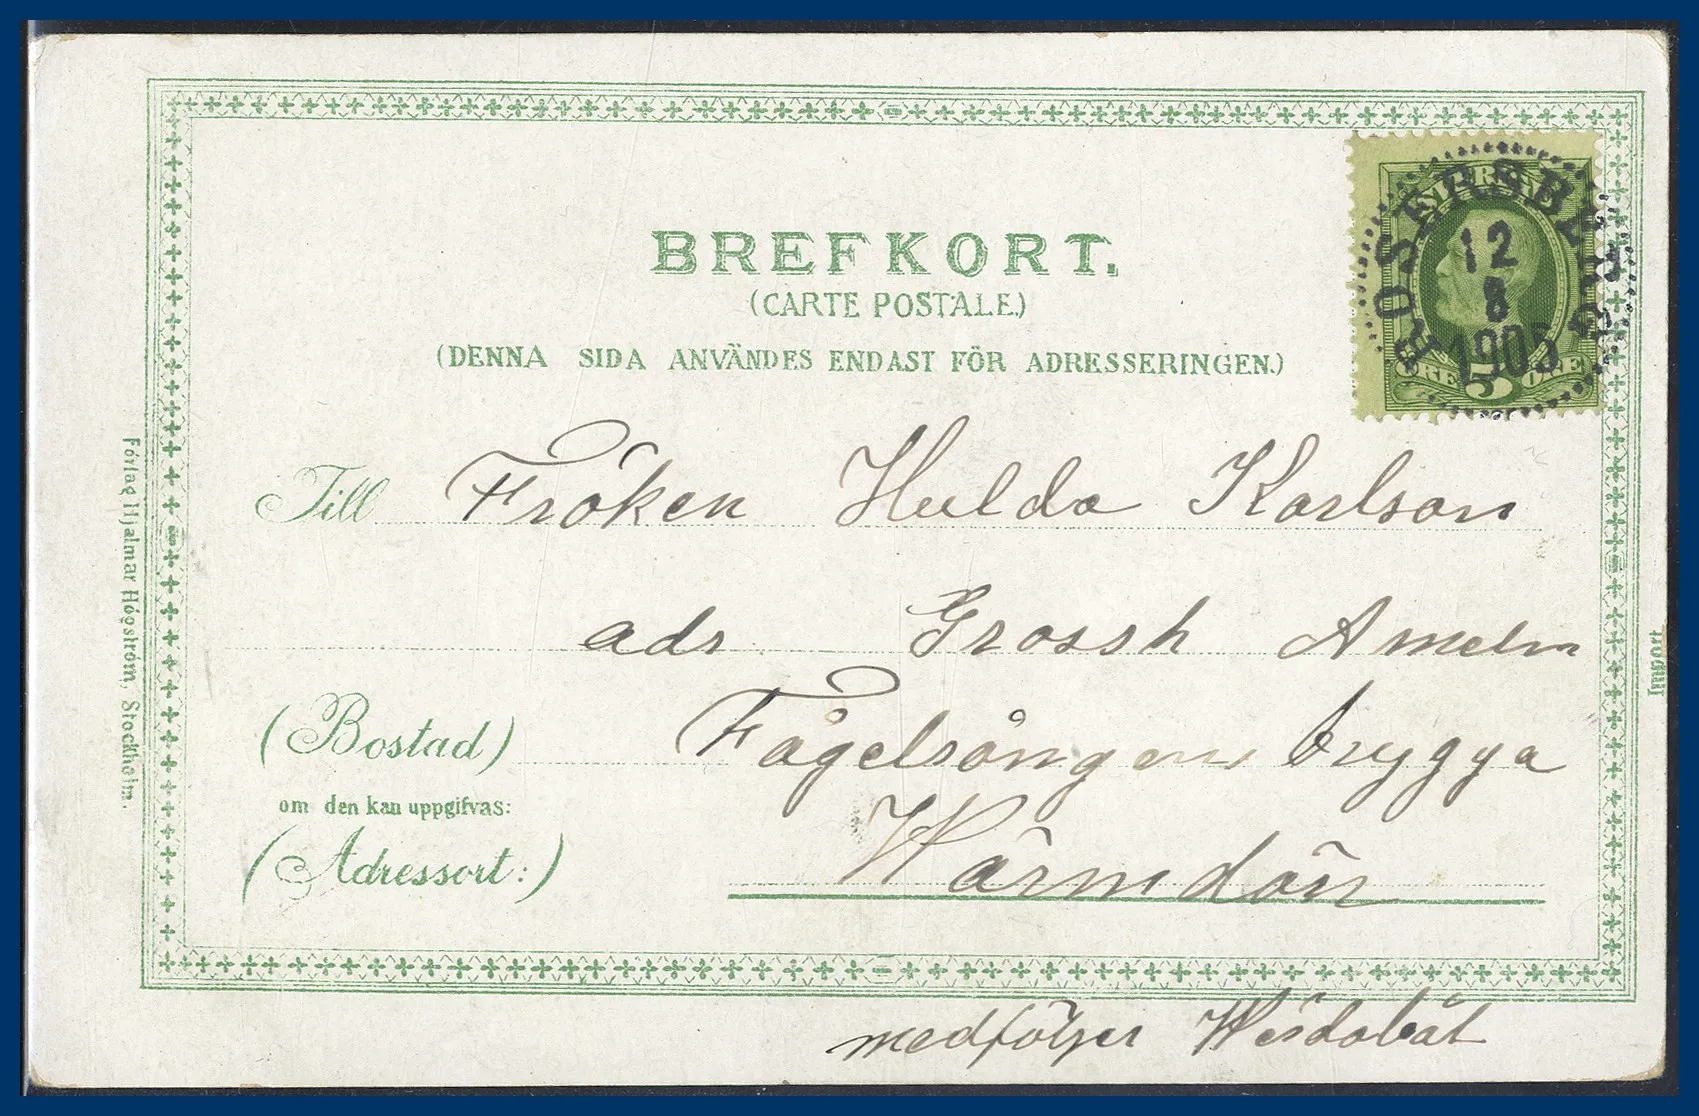 BREFKORT.
(CARTE POSTALE.)
(DENNA SIDA ANVÄNDES ENDAST FÖR ADRESSERINGEN.)
SVERIGE
ROSERSBERG
12
8
1905
ÖRE 5 ÖRE
Till Fröken Hulda Karlson
adr Grossh Ameln
(Bostad) Fågelsångens brygga
om den kan uppgifvas:
(Adressort:) Wärmdön
medfölger Wärdobåt
Förlag Hjalmar Högström, Stockholm.
Import